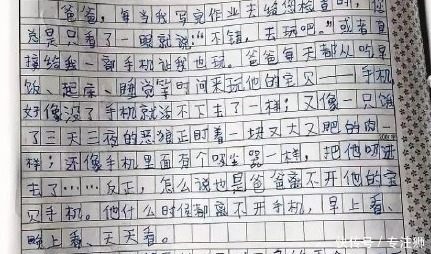 爸爸，每当我写完作业去给您检查时，您
总是只看了一眼就说："不错，去玩吧。"或者直
接给我一部手机让我也玩。爸爸每天都从吃早
饭、起床、睡觉等时间来玩他的宝贝——手机
好像没了手机就活不下去了一样；又像一只饿
了三天三夜的恶狼正盯着一块又大又肥的肉一
样；还像手机里面有个吸尘器一样，把他吸进
去了……反正，怎么说也是爸爸离不开他的宝
贝手机。他什么时候都离不开手机，早上看、
晚上看、天天看。